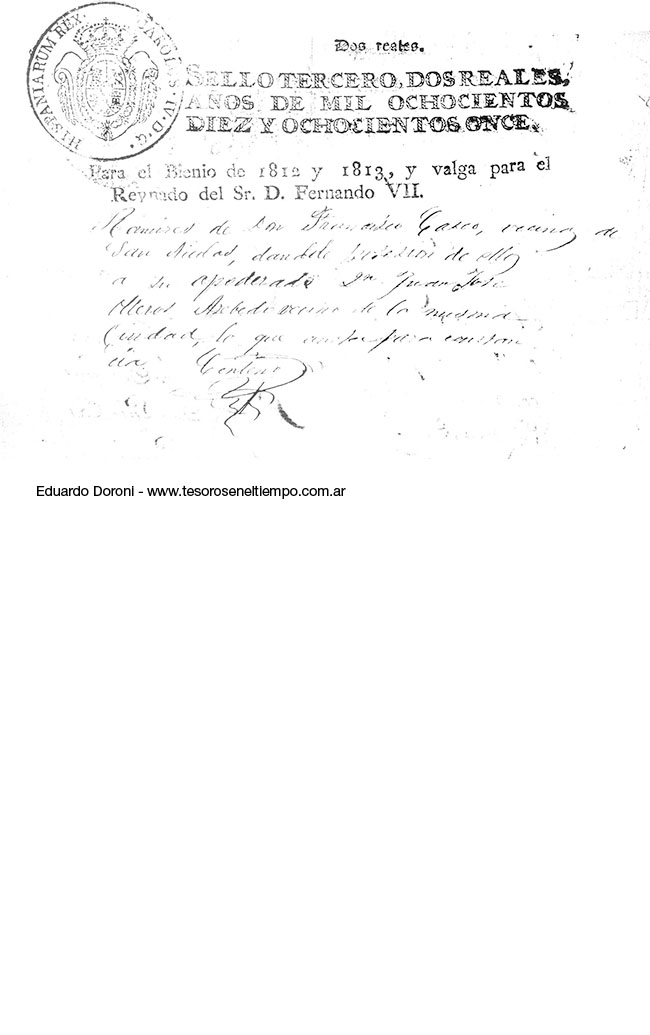 HISPANIARUM REX. CAROLUS. IV. D. G.
Dos reales.
SELLO TERCERO, DOS REALES,
AÑOS DE MIL OCHOCIENTOS
DIEZ Y OCHOCIENTOS ONCE.
Para el Bienio de 1812 y 1813, y valga para el
Reynado del Sr. D. Fernando VII.
Ramires de Don Francisco Casco, vecino de
San Nicolas, dandole de
a su apoderado Dn Juan José
vecino de la misma
Ciudad, lo que para constan
cia. Centeno
Eduardo Doroni - www.tesoroseneltiempo.com.ar